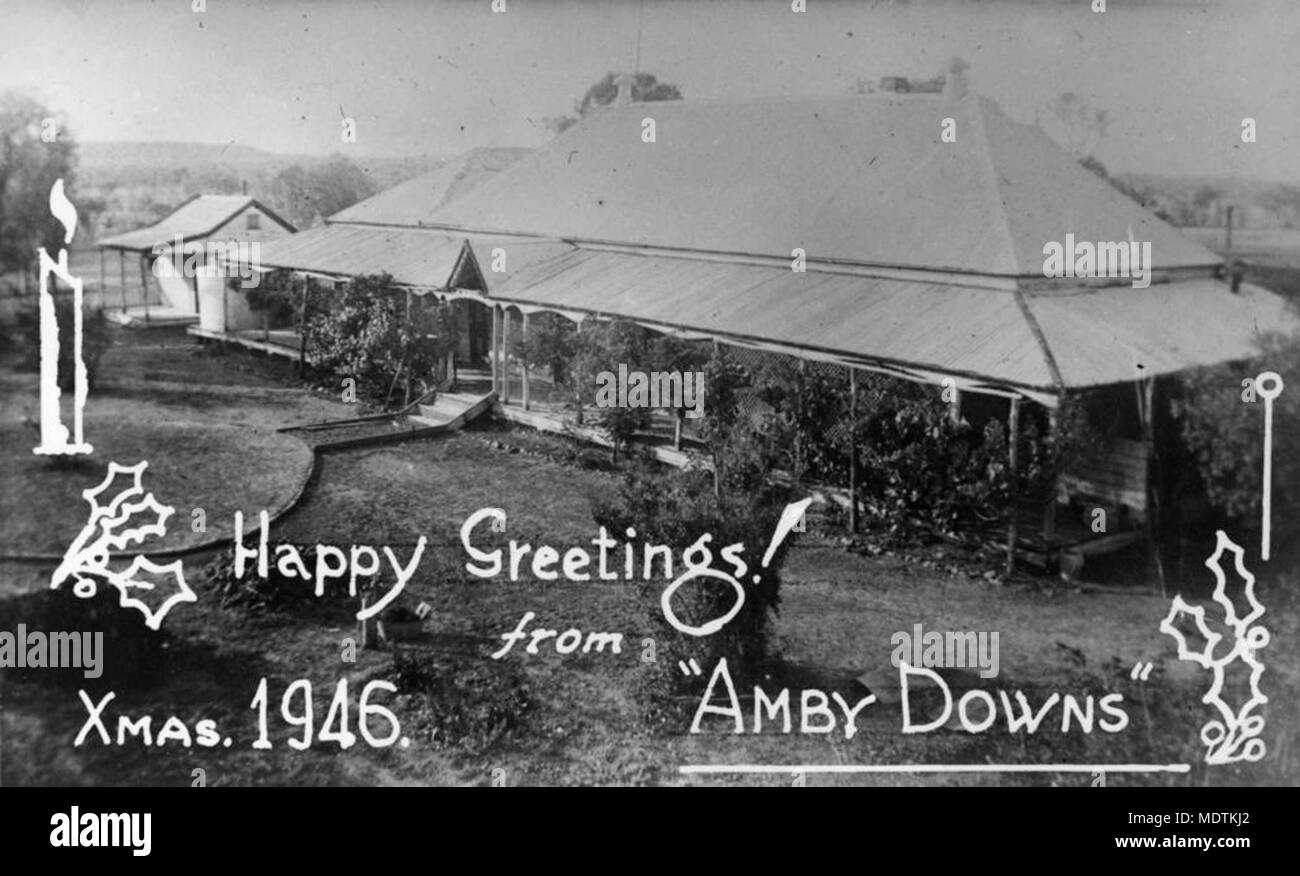 Happy Greetings!
from
"AMBY DOWNS"
XMAS. 1946.
a
alamy stock photo
a alamy
Image ID: MDTKJ2
www.alamy.com